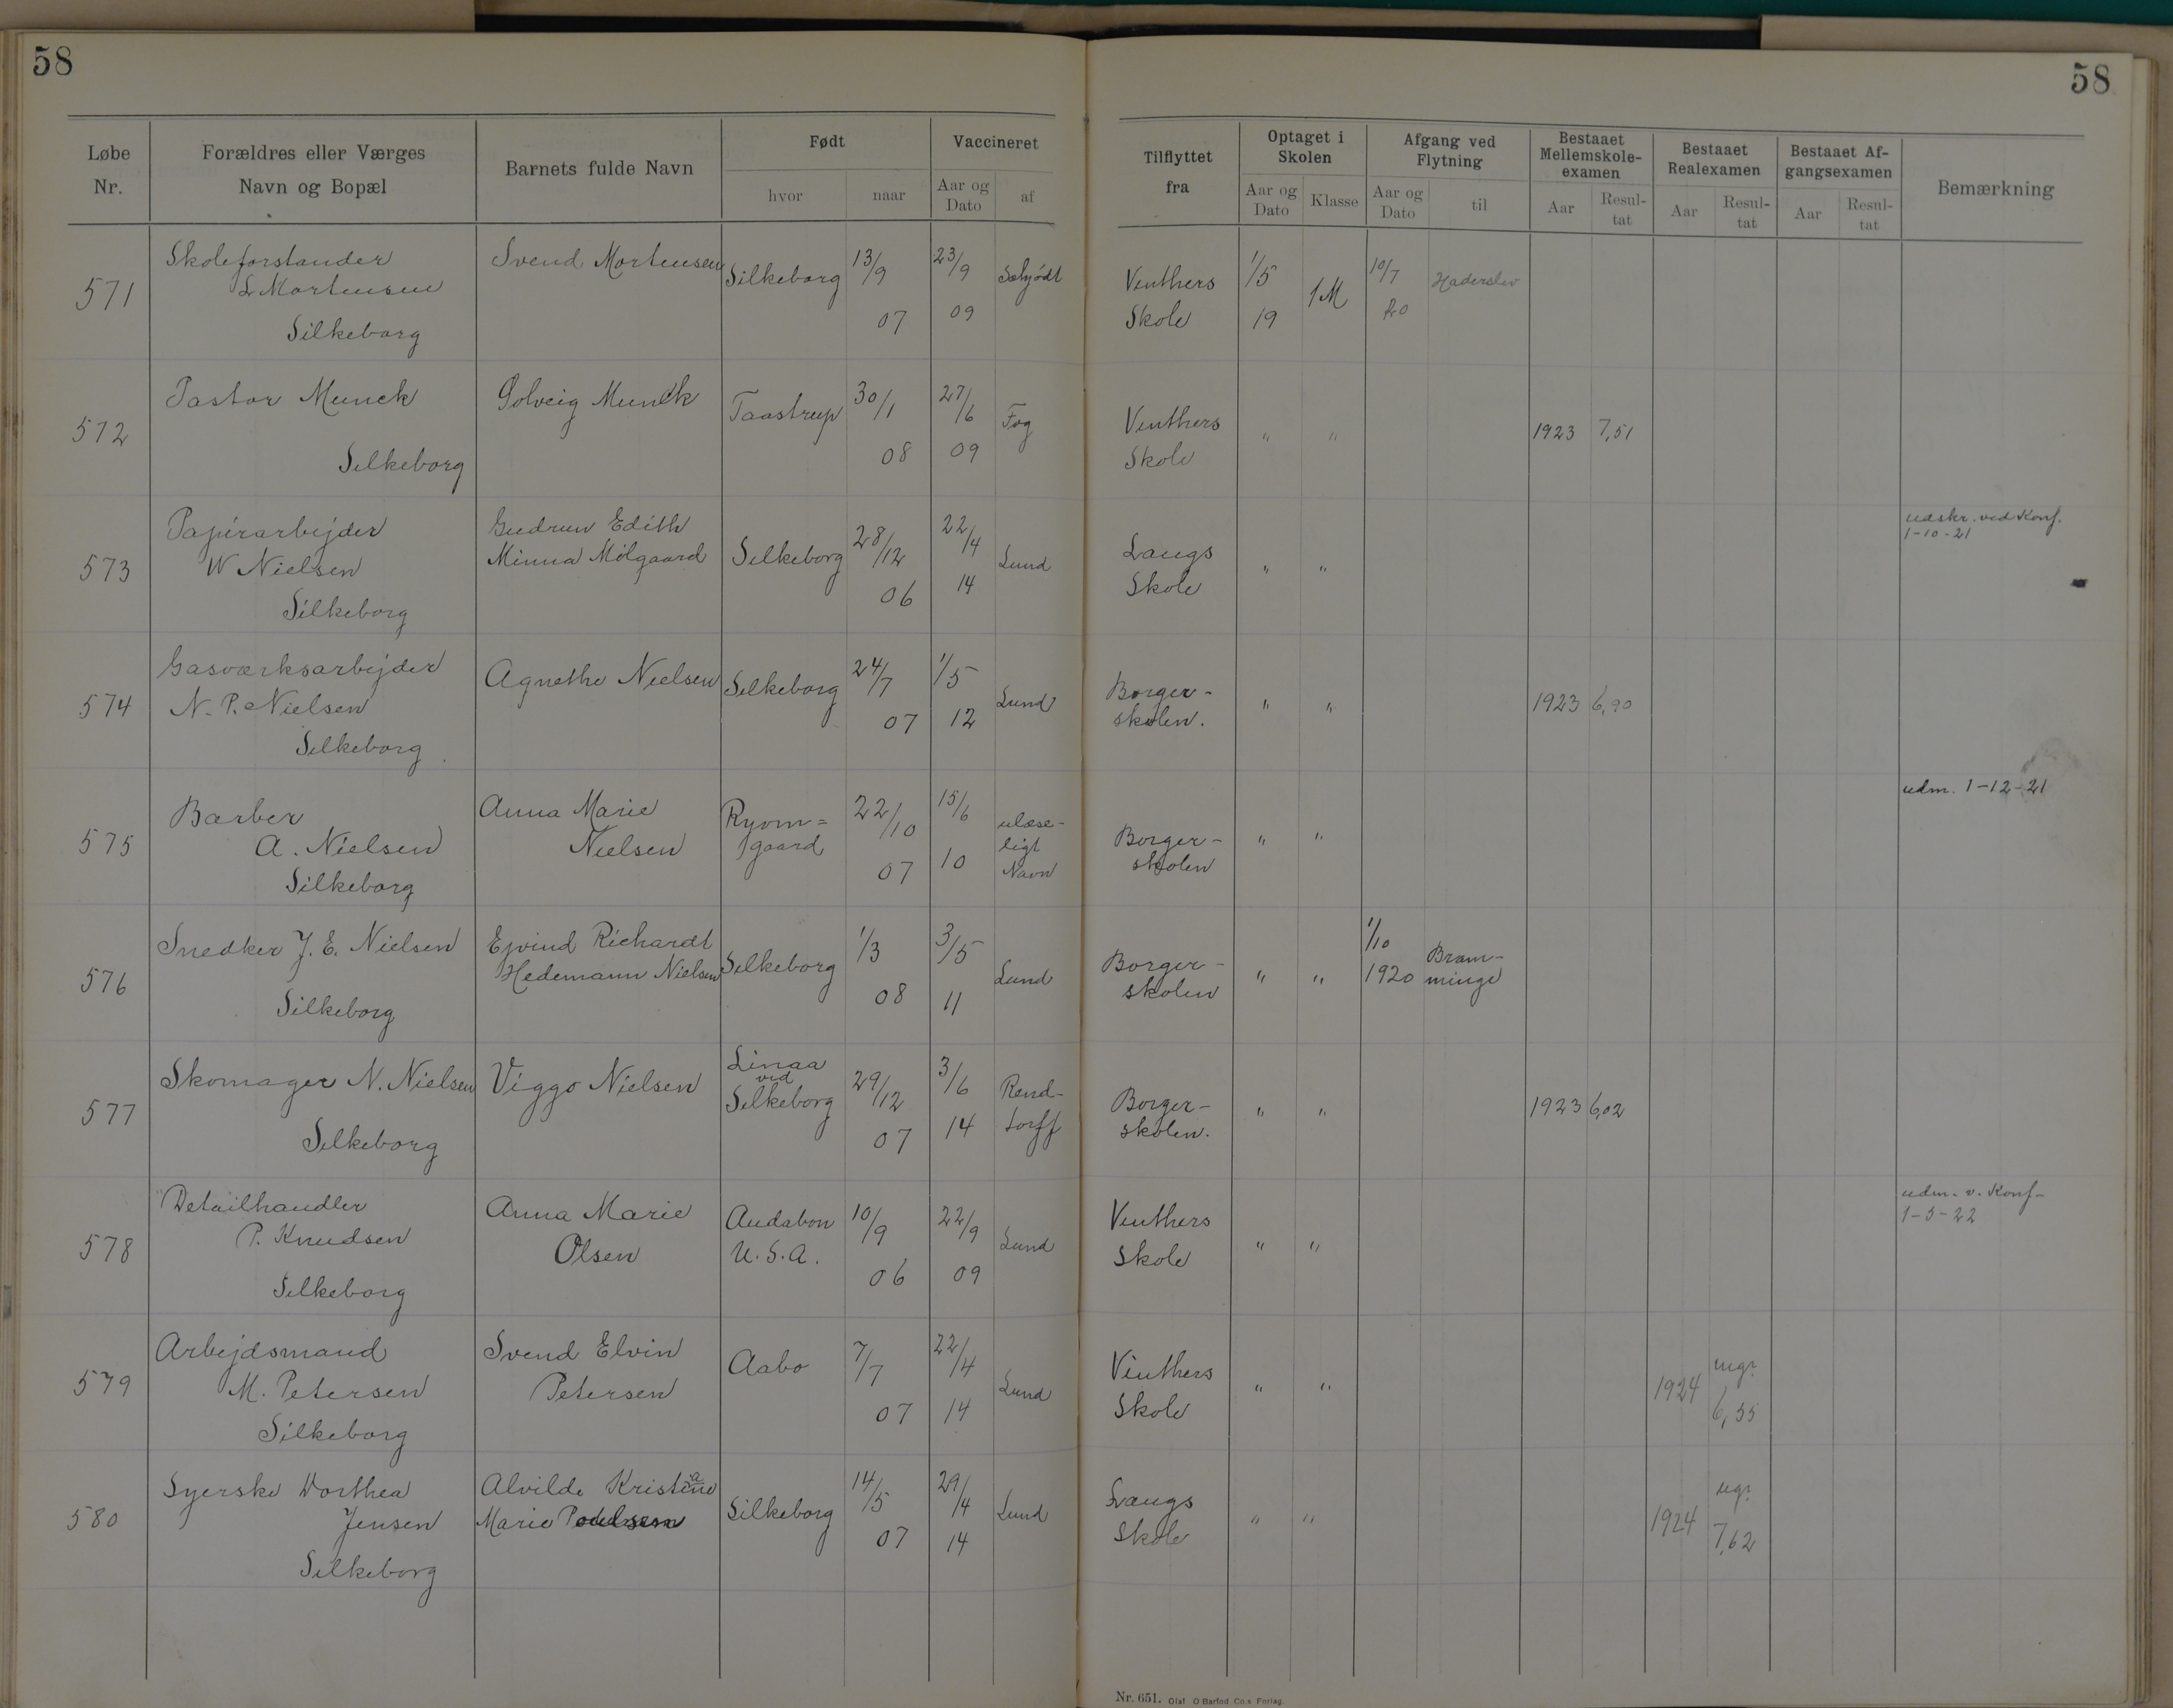 58
58
Løbe Nr.
Forældres eller Værges Navn og Bopæl
Barnets fulde Navn
Født
hvor
naar
Vaccineret
Aar og Dato
af
Tilflyttet fra
Optaget i Skolen
Aar og Dato
Klasse
Afgang ved Flytning
Aar og Dato
til
Bestaaet Mellemskole-examen
Aar
Resul-tat
Bestaaet Realexamen
Aar
Resul-tat
Bestaaet Af-gangsexamen
Aar
Resul-tat
Bemærkning
571
Skoleforstander
L Mortensen
Silkeborg
Svend Mortensen
Silkeborg
13/9
07
23/9
09
Vinthers
Skole
1/5
19
1M
10/7
20
Haderslev
572
Pastor Munck
Silkeborg
Solveig Munck
Taastrup
30/1
08
27/6
09
Fog
Vinthers
Skole
"
"
1923
7,51
573
Papirarbejder
W Nielsen
Silkeborg
Gudrun Edith
Minna Mölgaard
Silkeborg
28/12
06
22/4
14
Lund
Langs
Skole
"
"
udskr. ved Konf.
1-10-21
574
Gasværksarbejder
N. P. Nielsen
Silkeborg
Agnethe Nielsen
Silkeborg
24/7
07
1/5
12
Lund
Borger-
skolen.
"
"
1923
6,90
575
Barber
A. Nielsen
Silkeborg
Anna Marie
Nielsen
Ryom=
gaard
22/10
07
15/6
10
ulæse-
ligt
Navn
Borger-
skolen
"
"
udm. 1-12-21
576
Snedker J. E. Nielsen
Silkeborg
Ejvind Richardt
Hedemann Nielsen
Silkeborg
1/3
08
3/5
11
Lund
Borger-
skolen
"
"
1/10
1920
Bram-
minge
577
Skomager N. Nielsen
Silkeborg
Viggo Nielsen
Linaa
ved
Silkeborg
29/12
07
3/6
14
Rend-
torff
Borger-
skolen.
"
"
1923
6,02
578
Detailhandler
P. Knudsen
Silkeborg
Anna Marie
Olsen
Audabon
U.S.A.
10/9
06
22/9
09
Lund
Vinthers
Skole
"
"
udm. v. Konf-
1-5-22
579
Arbejdsmand
M. Petersen
Silkeborg
Svend Elvin
Petersen
Aabo
7/7
07
22/4
14
Lund
Vinthers
Skole
"
"
1924
mg?
6,55
580
Syerske Dorthea
Jensen
Silkeborg
Alvilde Kristine
Marie
Silkeborg
14/5
07
29/4
14
Lund
Langs
Skole
"
"
1924
ug?
7,62
Nr. 651. Olaf O Barfod Co.s Forlag.